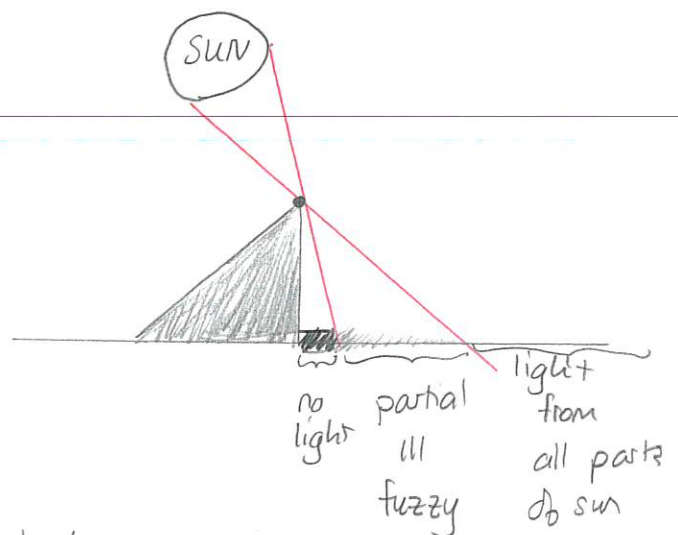 SUN
no
light
partial
|||
fuzzy
light
from
all parts
of sun